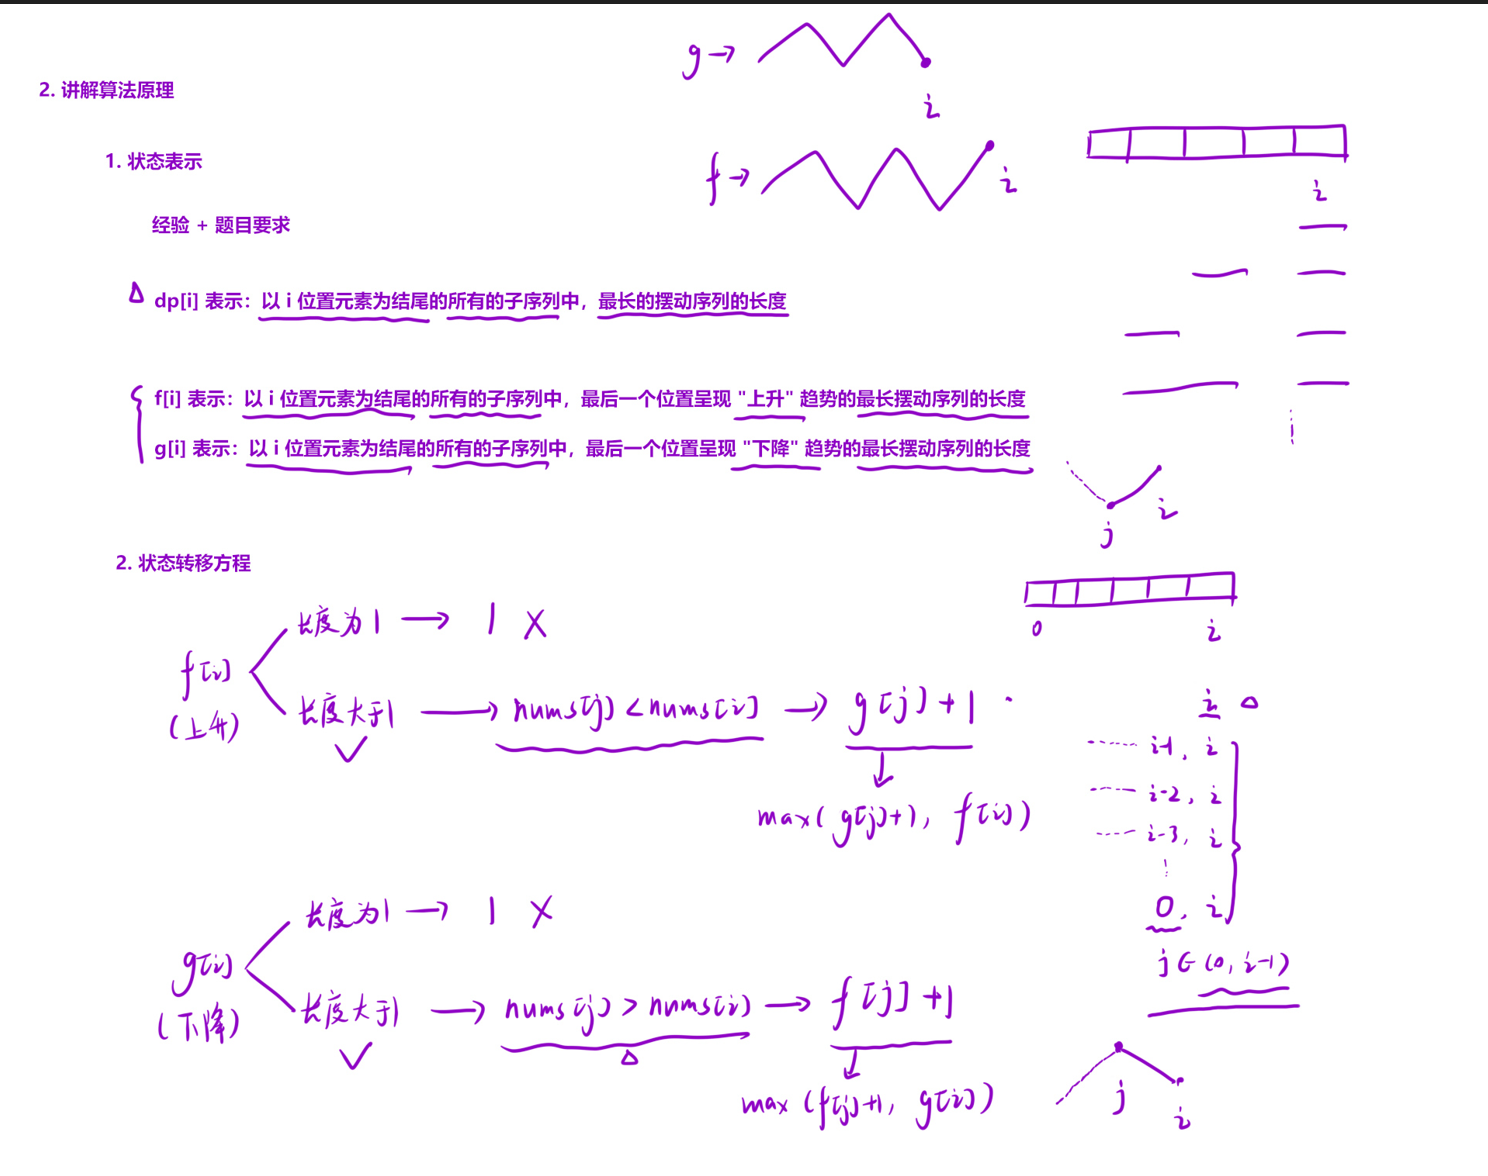 g→
i
2. 讲解算法原理
f→
i
1. 状态表示
i
经验 + 题目要求
dp[i] 表示：以 i 位置元素为结尾的所有的子序列中，最长的摆动序列的长度
f[i] 表示：以 i 位置元素为结尾的所有的子序列中，最后一个位置呈现 "上升" 趋势的最长摆动序列的长度
g[i] 表示：以 i 位置元素为结尾的所有的子序列中，最后一个位置呈现 "下降" 趋势的最长摆动序列的长度
j
i
2. 状态转移方程
0
i
f[i]
(上升)
长度为1 → 1 ×
长度大于1 → nums[j] < nums[i] → g[j]+1
max( g[j]+1, f[i] )
i
i-1, i
i-2, i
i-3, i
0, i
j∈(0, i-1)
g[i]
(下降)
长度为1 → 1 ×
长度大于1 → nums[j] > nums[i] → f[j]+1
max (f[j]+1, g[i])
j
i